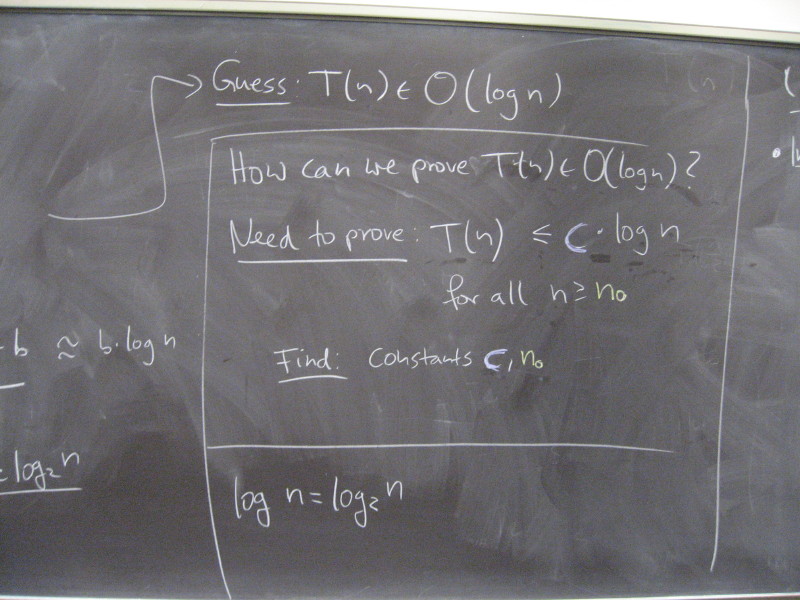 Guess: T(n) ∈ O(log n)
How can we prove T(n) ∈ O(log n)?
Need to prove: T(n) ≤ c · log n
for all n ≥ n₀
b ≈ b·log n
Find: Constants c, n₀
log₂ n
log n = log₂ n